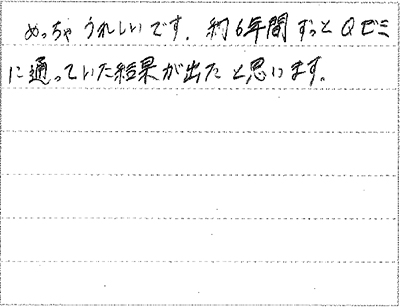 めっちゃうれしいです。約6年間ずっとQゼミ
に通っていた結果が出たと思います。